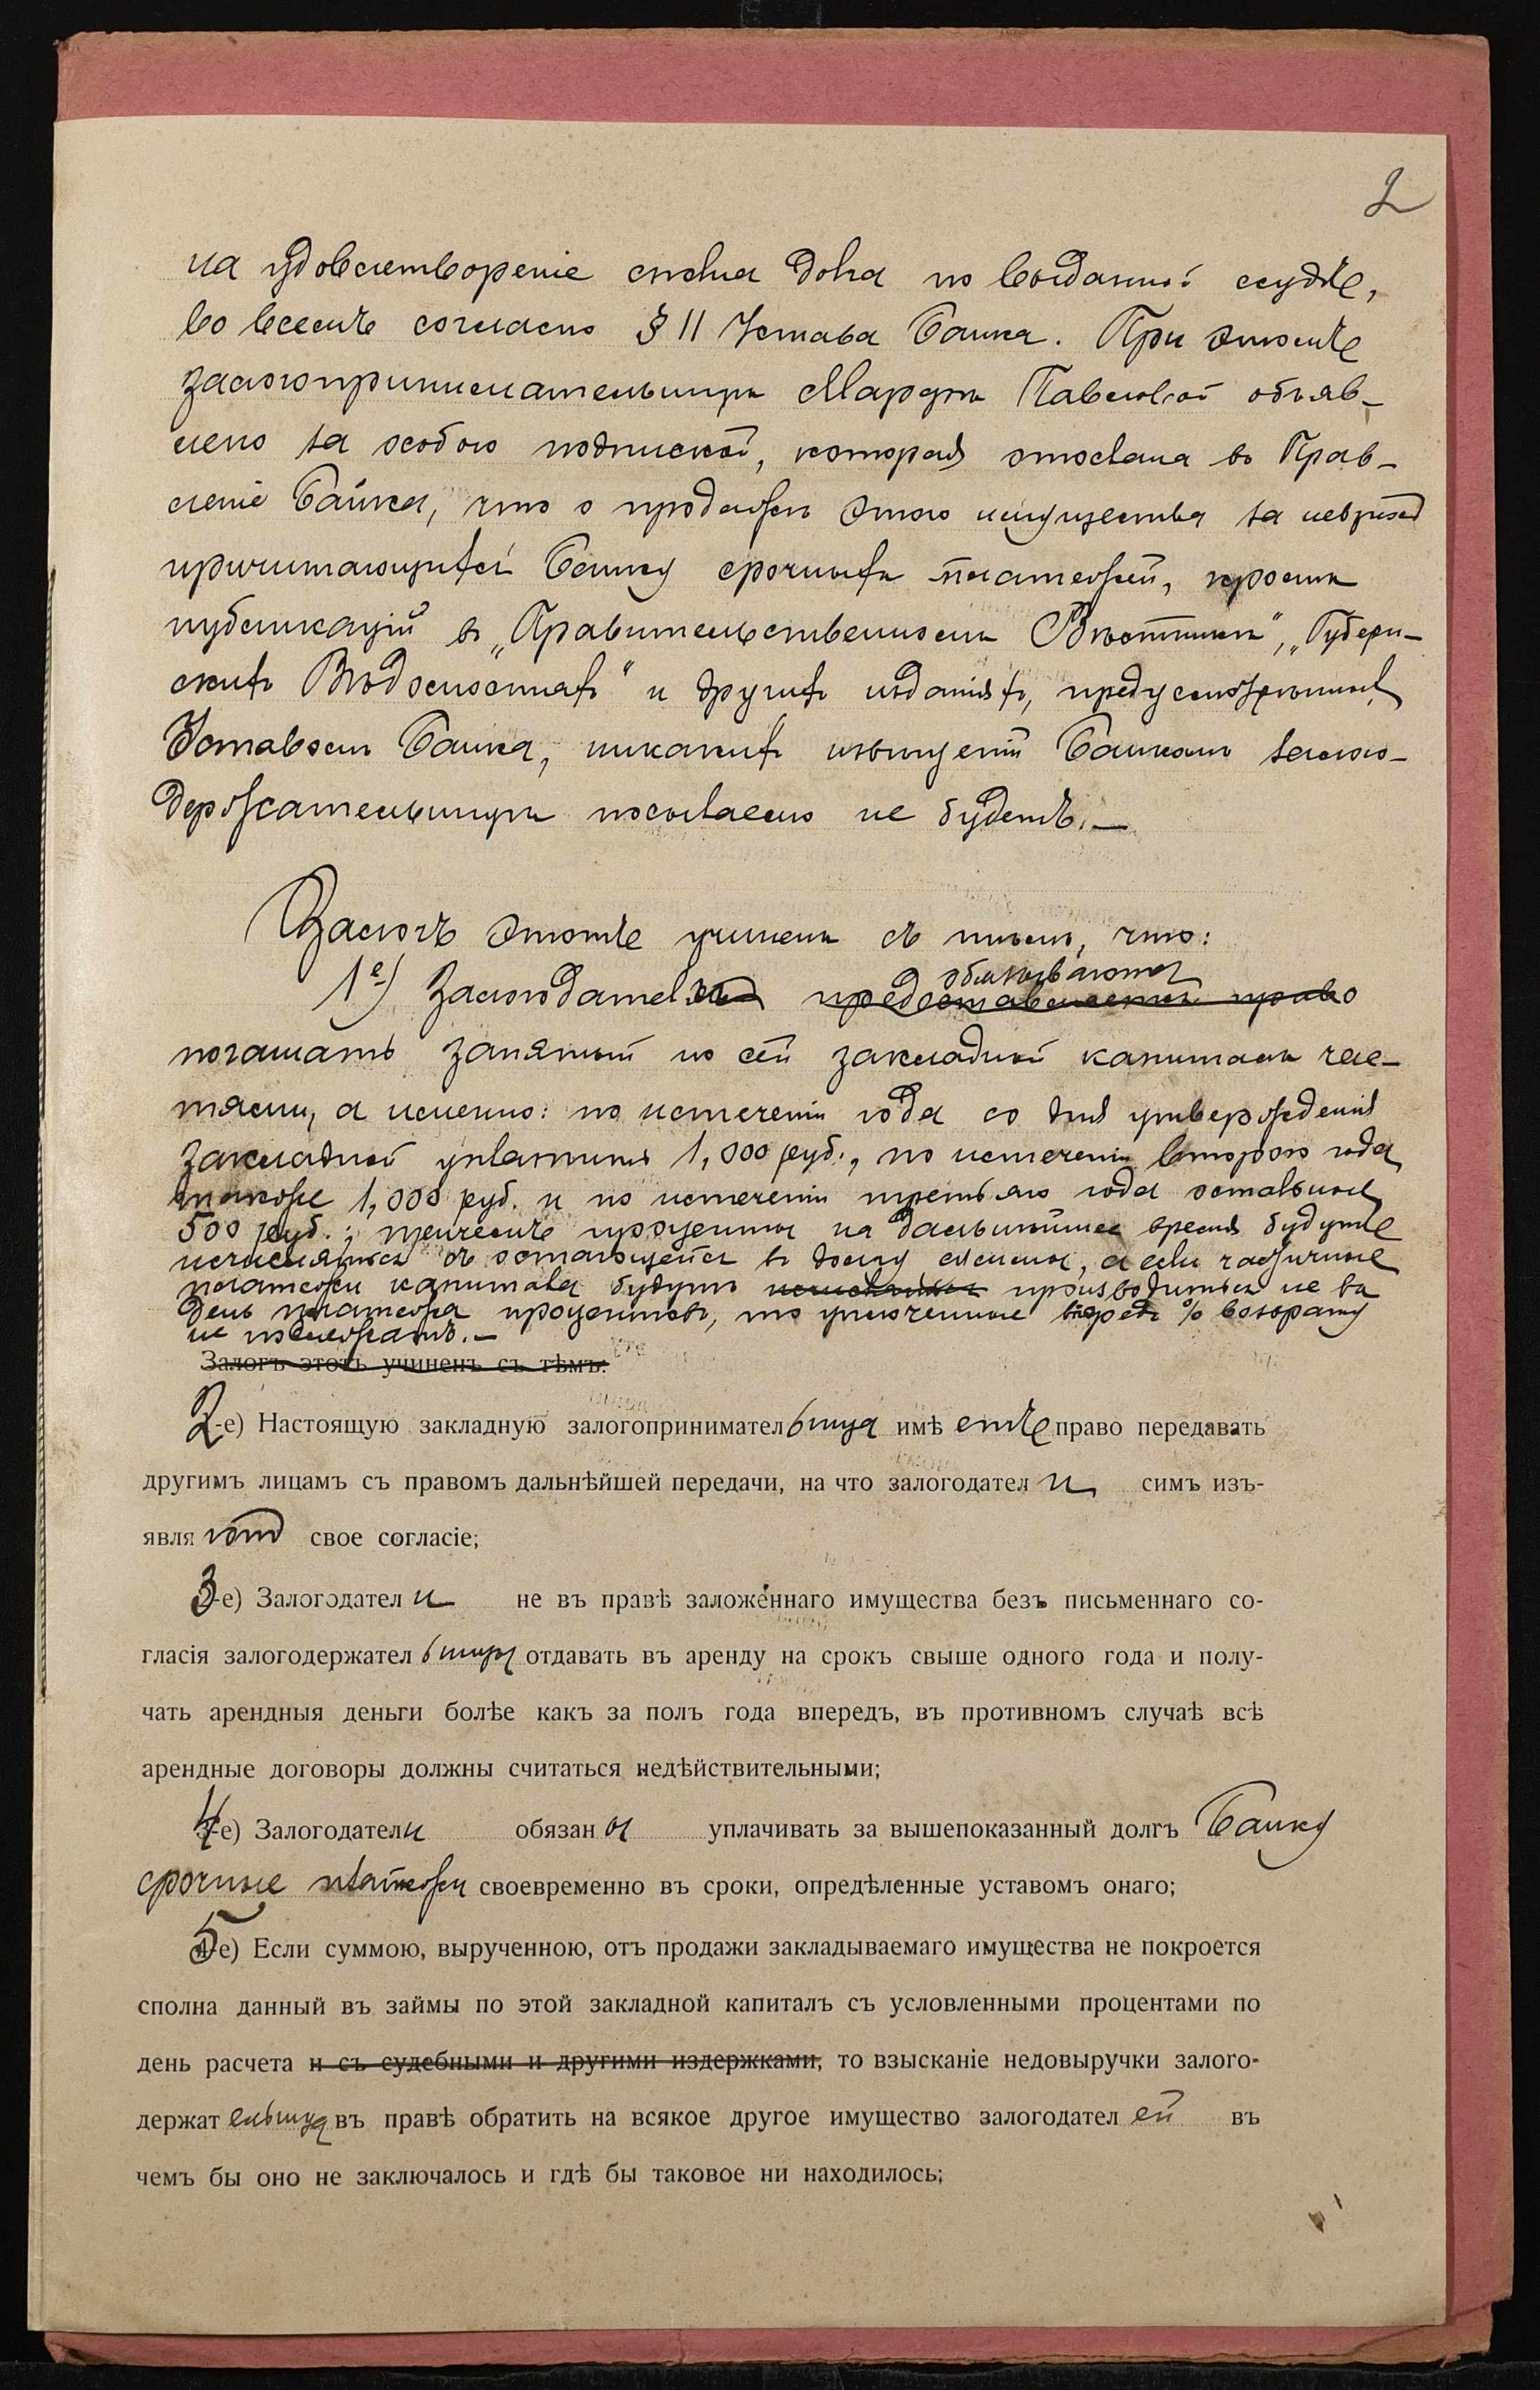 2
на удовлетвореніе сполна долга по выданной ссудѣ,
во всемъ согласно § 11 Устава Банка. При этомъ
залогопринимательницѣ Марѳѣ Павловой объяв-
лено за особою подпиской, которая отослана въ Прав-
леніе Банка, что о продажѣ этого имущества за невзносъ
причитающихся Банку срочныхъ платежей, кромѣ
публикацій въ „Правительственномъ Вѣстникѣ“, „Губерн-
скихъ Вѣдомостяхъ“ и другихъ изданіяхъ, предусмотрѣнныхъ
Уставомъ Банка, никакихъ извѣщеній Банкомъ залого-
держательницѣ посылаемо не будетъ.—
Залогъ этотъ учиненъ съ тѣмъ, что:
обязываются
1е) Залогодатели предоставляется право
погашать занятый по сей закладной капиталъ час-
тями, а именно: по истеченіи года со дня утвержденія
закладной уплатить 1,000 руб., по истеченіи второго года
также 1,000 руб. и по истеченіи третьяго года остальные
500 руб.; причемъ проценты на дальнѣйшее время будутъ
исчисляться съ остающейся въ долгу суммы, а если частичные
платежи капитала будутъ производиться не въ
день платежа процентовъ, то уплоченные впредъ % возврату
не подлежатъ.—
Залогъ этотъ учиненъ съ тѣмъ:
2-е) Настоящую закладную залогопринимательница имѣетъ право передавать
другимъ лицамъ съ правомъ дальнѣйшей передачи, на что залогодатели симъ изъ-
являютъ свое согласіе;
3-е) Залогодатели не въ правѣ заложеннаго имущества безъ письменнаго со-
гласія залогодержательницы отдавать въ аренду на срокъ свыше одного года и полу-
чать арендныя деньги болѣе какъ за полъ года впередъ, въ противномъ случаѣ всѣ
арендные договоры должны считаться недѣйствительными;
4-е) Залогодатели обязаны уплачивать за вышепоказанный долгъ Банку
срочные платежи своевременно въ сроки, опредѣленные уставомъ онаго;
5-е) Если суммою, вырученною, отъ продажи закладываемаго имущества не покроется
сполна данный въ займы по этой закладной капиталъ съ условленными процентами по
день расчета и съ судебными и другими издержками, то взысканіе недовыручки залого-
держательница въ правѣ обратить на всякое другое имущество залогодателей въ
чемъ бы оно не заключалось и гдѣ бы таковое ни находилось;